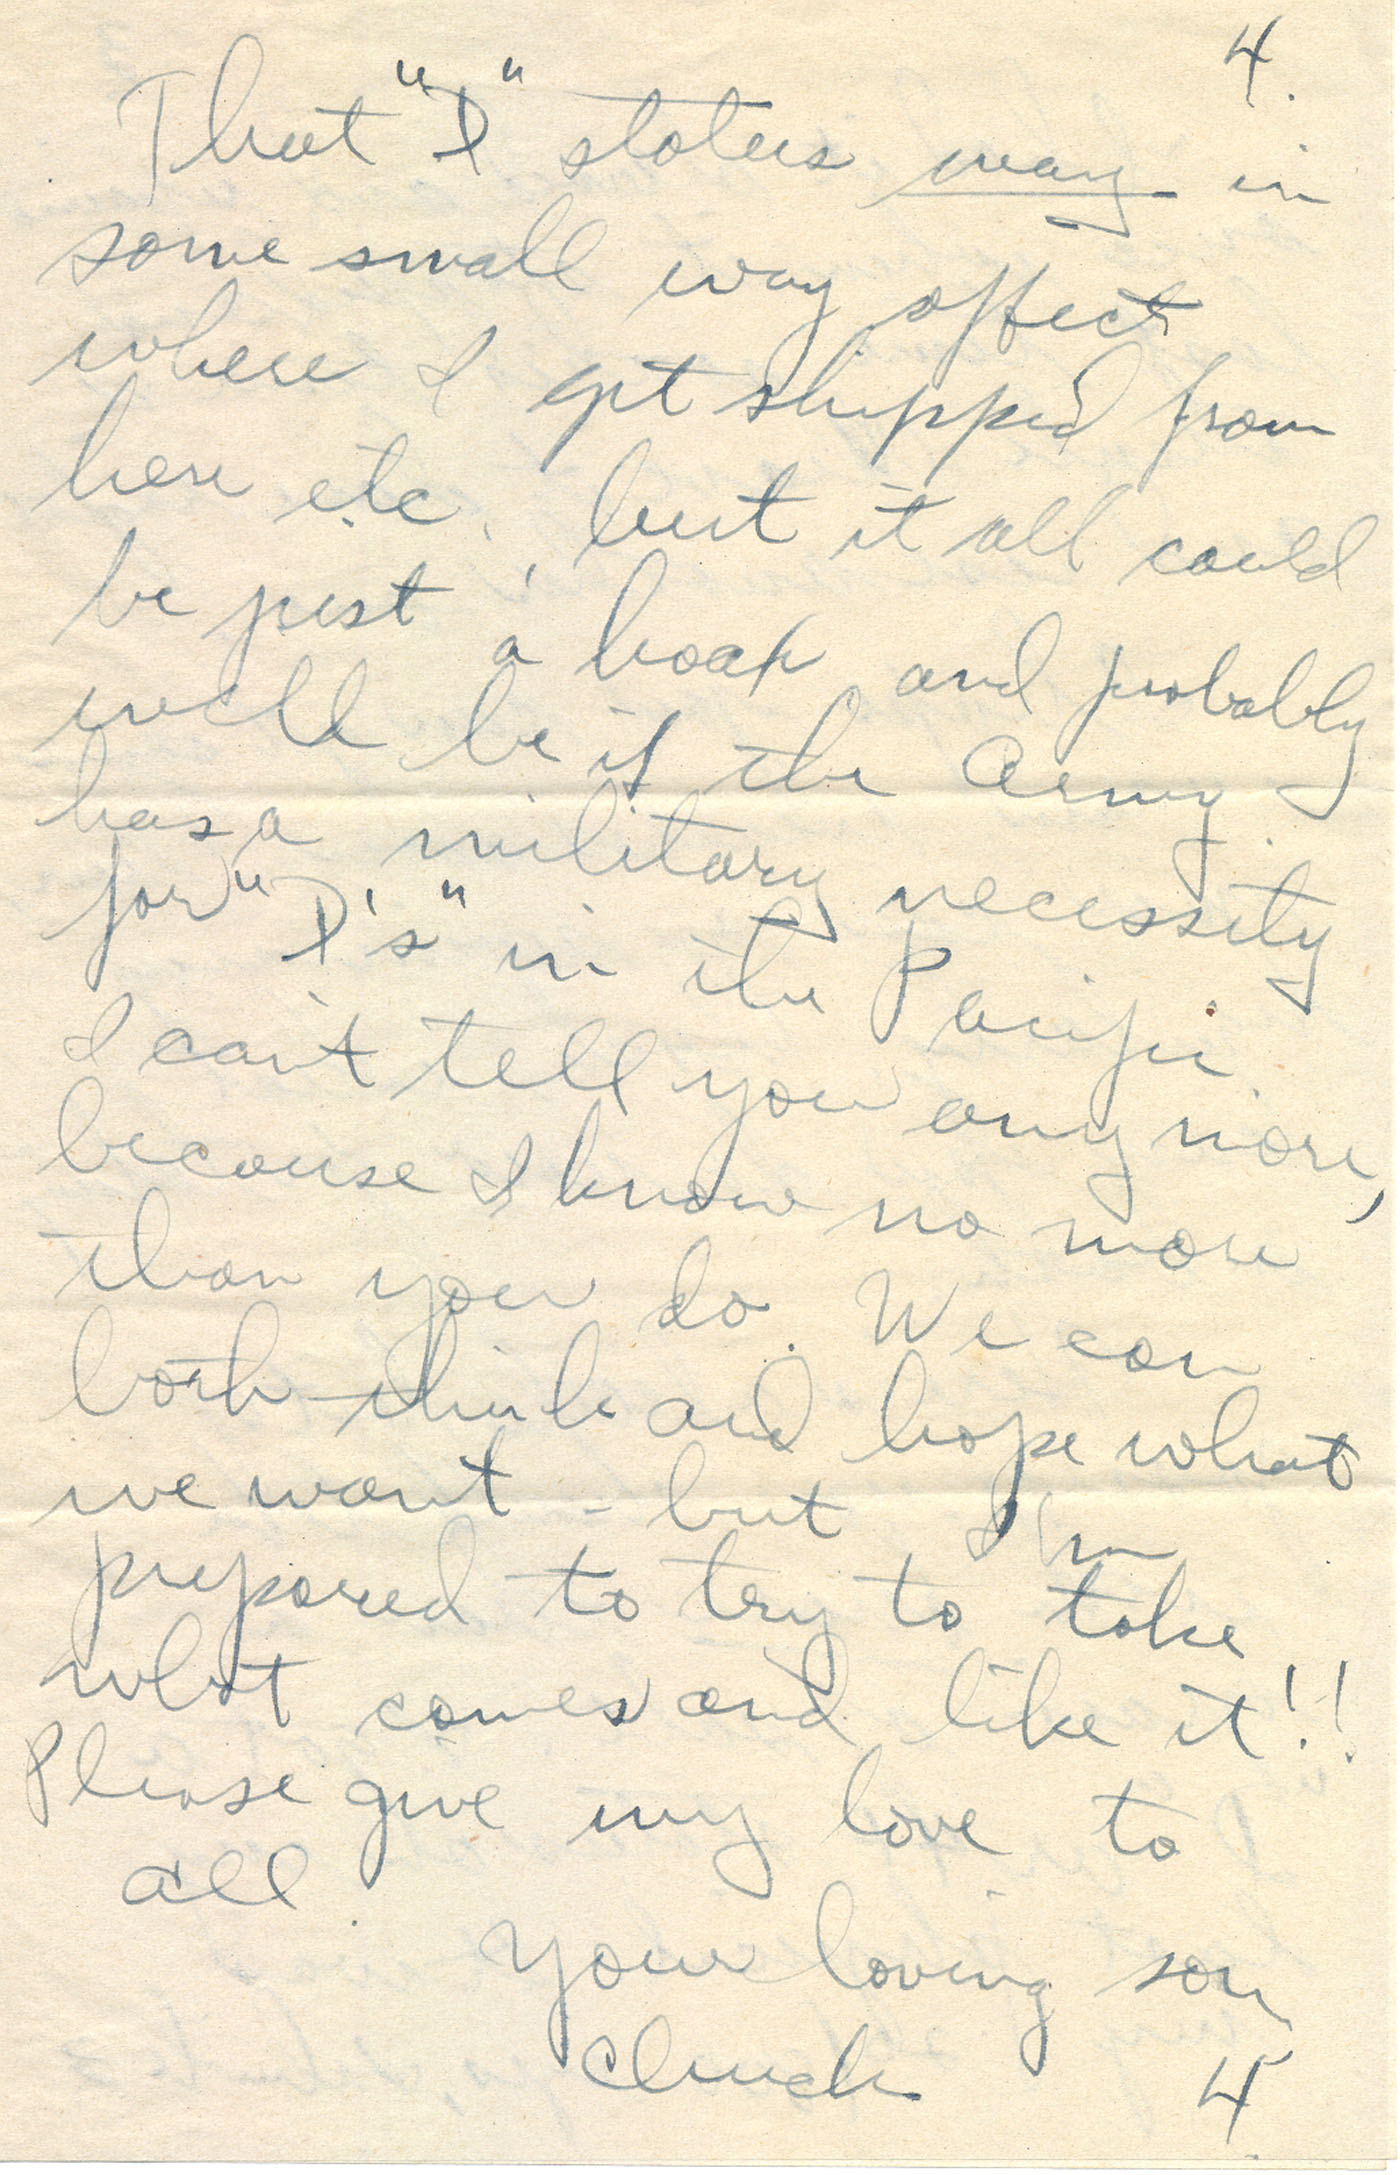 4.
That "D" status may in
some small way affect
where I get shipped from
here etc., but it all could
be just a hoax and probably
will be if the Army
has a military necessity
for "D's" in the Pacific.
I can't tell you any more,
because I know no more
than you do. We can
both think and hope what
we want - but I'm
prepared to try to take
what comes and like it!!
Please give my love to
all.
Your loving son
Chuck
4